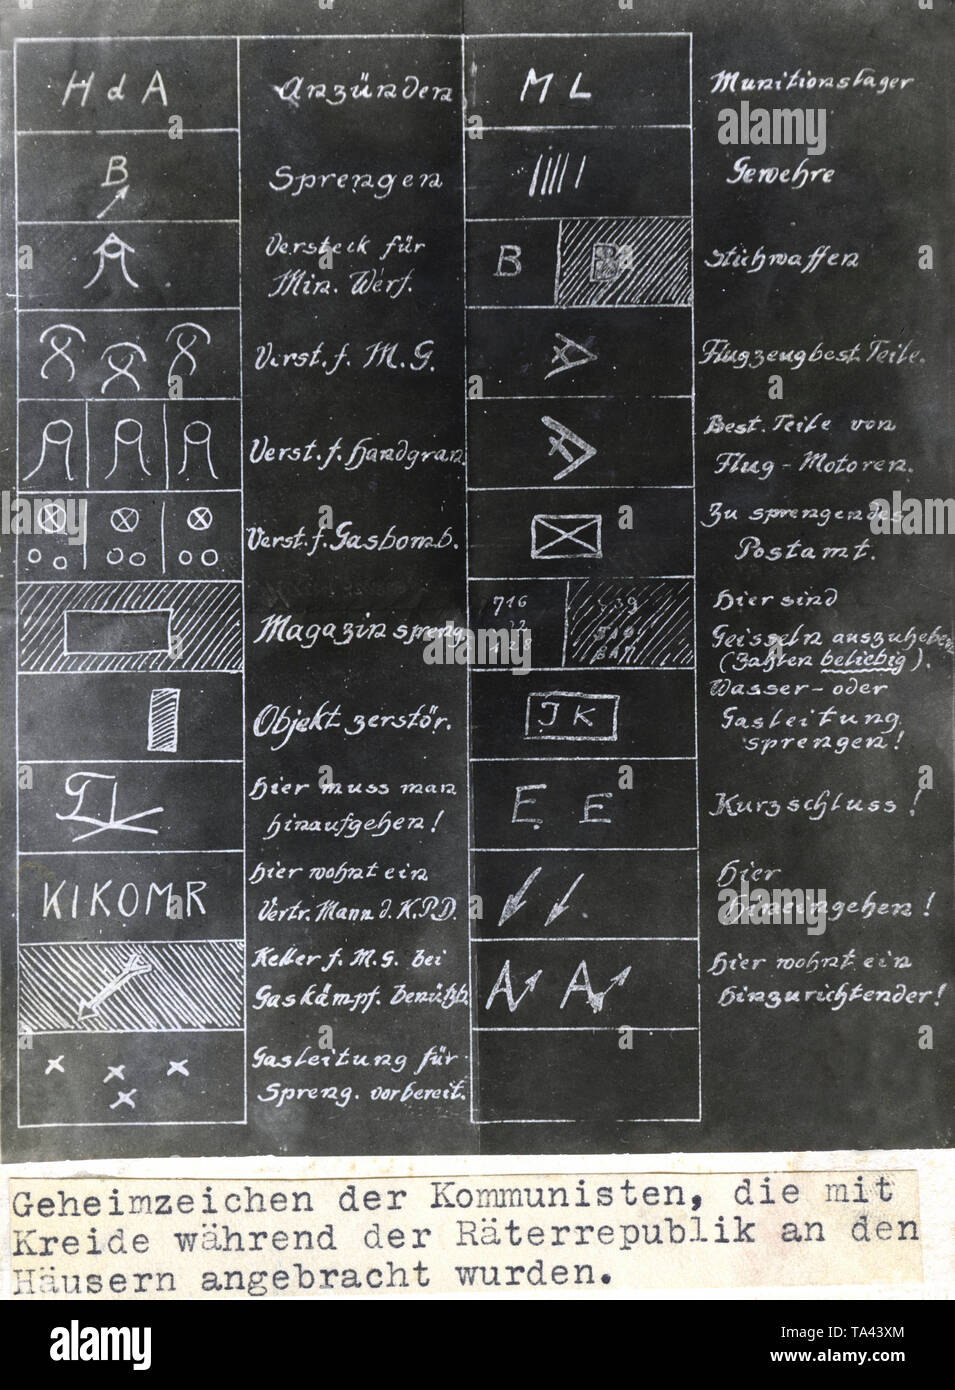 H d A
Anzünden
B
Sprengen
Versteck für
Min. Werf.
Verst. f. M. G.
Verst. f. Handgran.
Verst. f. Gasbomb.
Magazin spreng.
Objekt zerstör.
Hier muss man
hinaufgehen!
KIKOMR
Hier wohnt ein
Vertr. Mann d. K.P.D.
Keller f. M. G. bei
Gaskämpf. benützb.
Gasleitung für
Spreng. vorbereit.
M L
Munitionslager
Gewehre
B B
Stichwaffen
Flugzeugbest. Teile.
Best. Teile von
Flug-Motoren.
Zu sprengendes
Postamt.
716
22
428
Hier sind
Geisseln auszuheben
(Zahlen beliebig).
JK
Wasser- oder
Gasleitung
sprengen!
E. E
Kurzschluss!
Hier
Hineingehen!
A A
Hier wohnt ein
Hinzurichtender!
Geheimzeichen der Kommunisten, die mit
Kreide während der Räterrepublik an den
Häusern angebracht wurden.
alamy
Image ID: TA43XM
www.alamy.com